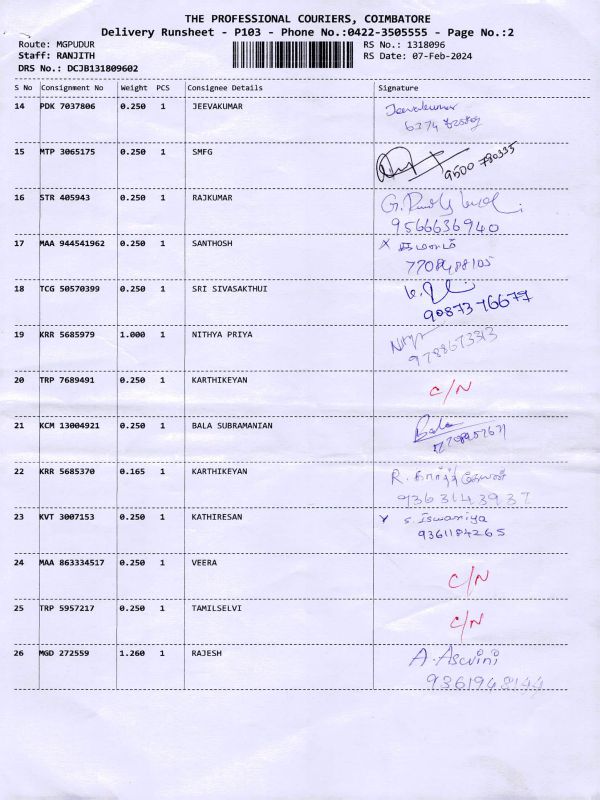 THE PROFESSIONAL COURIERS, COIMBATORE
Delivery Runsheet - P103 - Phone No.:0422-3505555 - Page No.:2
Route: MGPUDUR RS No.: 1318096
Staff: RANJITH RS Date: 07-Feb-2024
DRS No.: DCJB131809602
S No Consignment No Weight PCS Consignee Details Signature
14 PDK 7037806 0.250 1 JEEVAKUMAR Jeevakumar
6374
15 MTP 3065175 0.250 1 SMFG
9500 780335
16 STR 405943 0.250 1 RAJKUMAR G.
9566636940
17 MAA 944541962 0.250 1 SANTHOSH X
7708488105
18 TCG 50570399 0.250 1 SRI SIVASAKTHUI
9087376677
19 KRR 5685979 1.000 1 NITHYA PRIYA
9788673313
20 TRP 7689491 0.250 1 KARTHIKEYAN C/N
21 KCM 13004921 0.250 1 BALA SUBRAMANIAN Bala
22 KRR 5685370 0.165 1 KARTHIKEYAN R. கார்த்திகேயன்
9363143937
23 KVT 3007153 0.250 1 KATHIRESAN S. Iswariya
9361184265
24 MAA 863334517 0.250 1 VEERA C/N
25 TRP 5957217 0.250 1 TAMILSELVI C/N
26 MGD 272559 1.260 1 RAJESH A. Asvini
9361948144